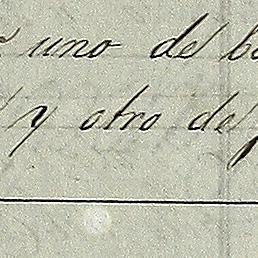 uno de
y otro de